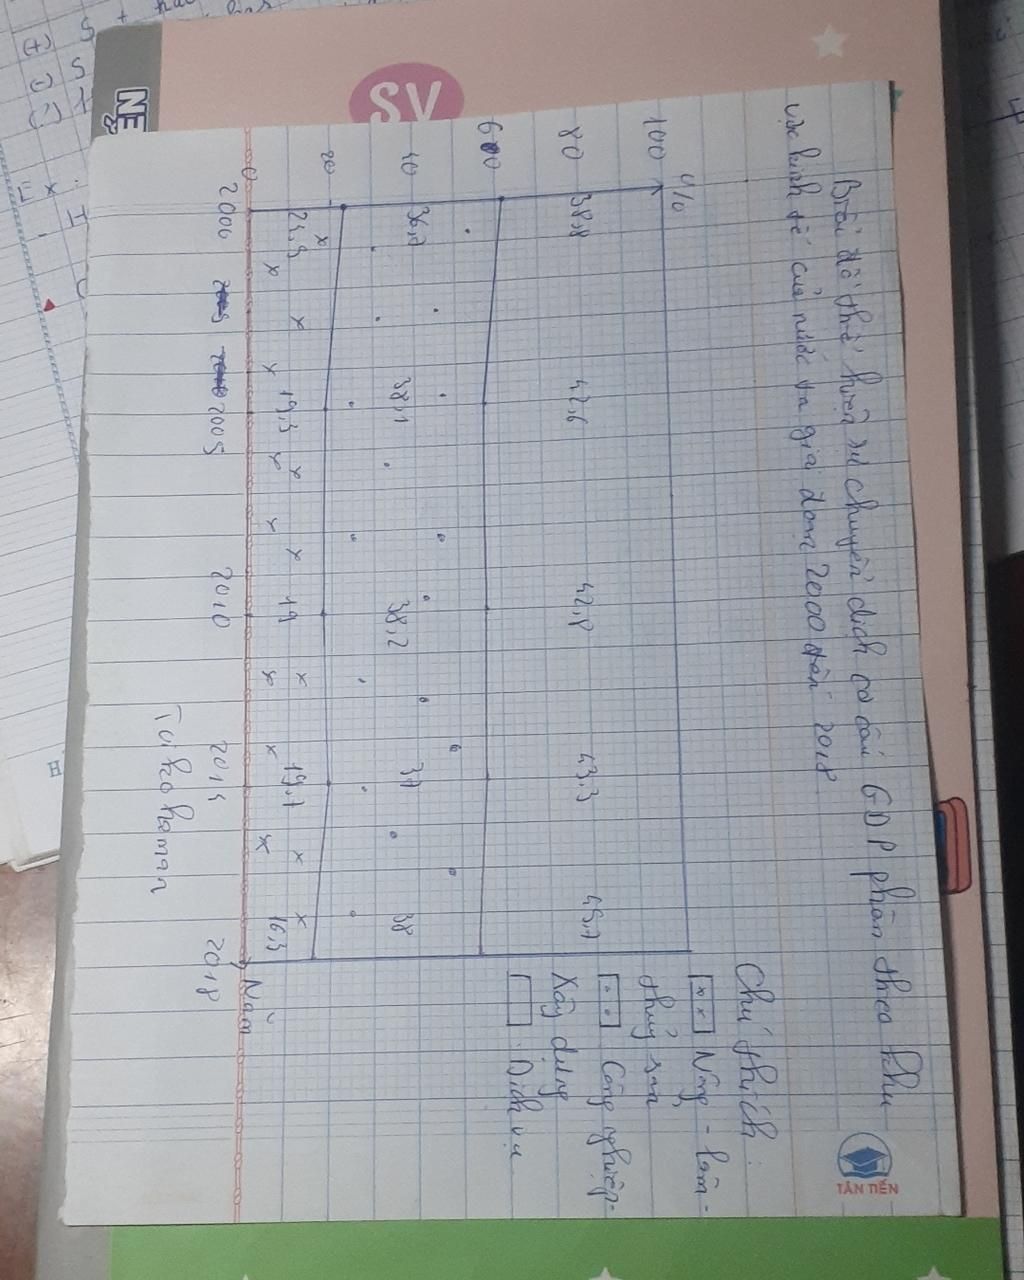 Biểu đồ thể hiện sự chuyển dịch cơ cấu GDP phân theo khu
vực kinh tế của nước ta giai đoạn 2000 đến 2018
%
100
80
60
40
20
0
38,8 42,6 42,8 43,3 45,7
38,1 38,2 37 38
19,3 19 19,7 16,3
2005 2010 2014 2018
Năm
Chú thích:
Nông - lâm -
thuỷ sản
Công nghiệp -
Xây dựng
Dịch vụ
TÂN TIẾN
SV